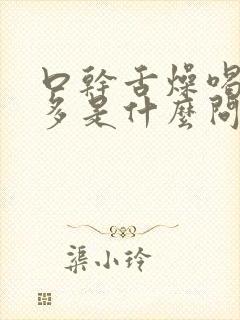 口幹舌燥喝
多是什麼問
渠小玲